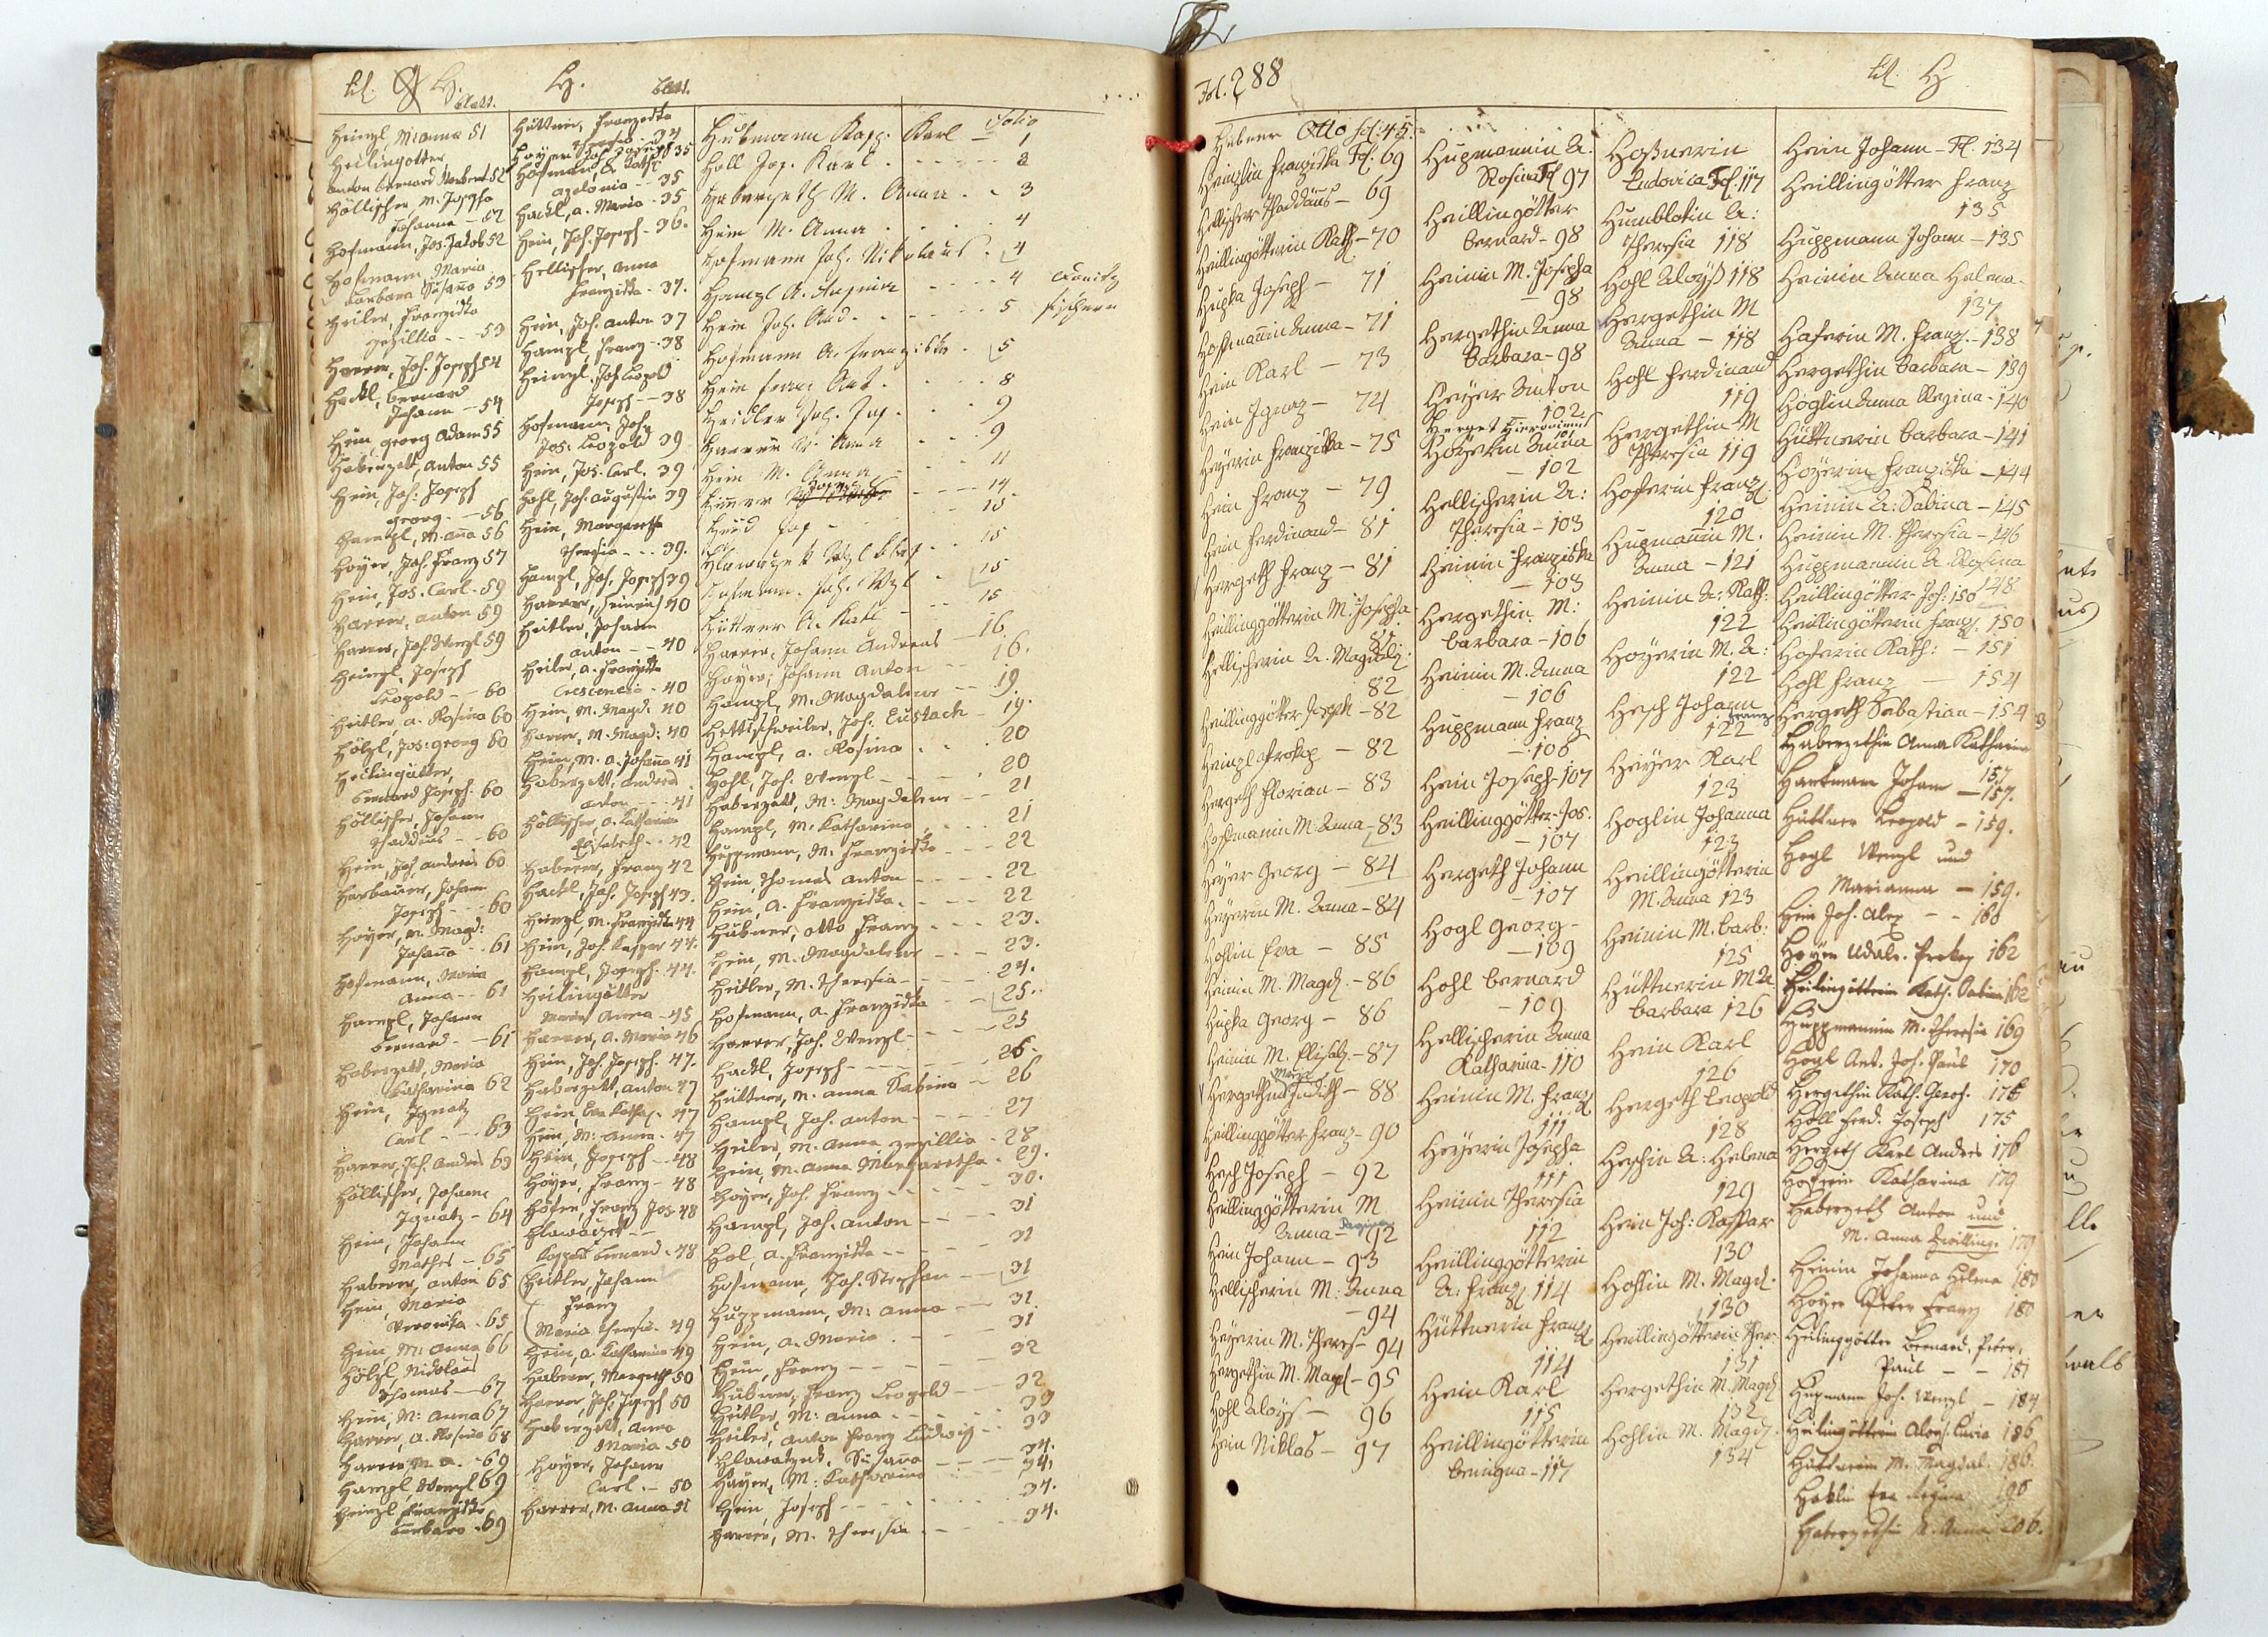 H.
blatt.
Heinzl, M: anna 51
Heilingötter
anton bernard Norbert 52
Höllischer M. Josepha
Johanna - 52
Hofmann, Jos: Jakob 52
Hofmann Maria
barbara Susana 53
Heiler, Franziska
Zezillia - - 53
Harrer, Joh. Joseph 54
Hackl, bernard
Johann - 54
Hein, georg Adam 55
Haberzett, anton 55
Hein, Joh: Joseph
georg - 56
Hampl, M. ana 56
Hoyer, Joh. Franz 57
Hein, Jos. Carl - 59
Harrer, anton 59
Harrer, Joh. Wenzl 59
Heinzl, Joseph
Leopold - - 60
Heitler, a. Rosina 60
Hölzl, Jos: georg 60
Heilingötter,
bernard Joseph - 60
Höllischer, Johann
Thaddäus - - 60
Hein, Joh. andreas 60
Harbauer, Johann
Joseph - - 60
Hoyer, M. Magd:
Johana - - 61
Hofmann, Maria
Anna - - 61
Hampl, Johann
bernard - - 61
Haberzett, Maria
Katharina 62
Hein, Ignatz
Carl - - 63
Harrer, Joh. Andreas 63
Höllischer, Johann
Ignatz - 64
Hein, Johann
Mathes - 65
Haberer, anton 65
Hein, Maria
Veronika - 65
Hein, M: anna 66
Hölzl, Nicolaus
Thomas - 67
Hein, M: anna 67
Harrer, a. Rosina 68
Harrer M. a. - 69
Hampl, Wenzl 69
Heinzl Franziska
barbara - 69
H.
blatt.
Hüttner, Franziska
Theresia 34
Hofmann, a. Kath:
apolonia - - 35
Hackl, a. Maria - 35
Hein, Joh. Joseph - 36.
Hellischer, Anna
Franziska - 37.
Hein, Joh. anton 37
Hampl, Franz - 38
Heinzl, Joh. Leopold
Joseph - - 38
Hofmann, Joh.
Jos: Leopold 39
Hein, Jos. Carl. 39
Hohl, Joh. augustin 39
Hein, Margaretha
Theresia - - 39.
Hampl, Joh. Joseph 39
Heitler, Johann
anton - - 40
Heiler, a. Franziska
Crescencia - 40
Hein, M. Magd. 40
Harrer, M. Magd: 40
Hein, M. a. Johana 41
Haberzett, andreas
anton - - 41
Höllischer, a. Katharina
Elisabeth - - 42
Haberer, Franz 42
Hackl, Joh. Joseph 43.
Heinzl, M. Franziska 44
Hein, Joh. Kaspar 44.
Hampl, Joseph - 44.
Heilingötter
Maria Anna - 45
Harrer, a. Maria 46
Hein, Joh. Joseph - 47.
Haberzett, anton 47
Hein, Eva Katha. 47
Hein, M: anna - 47
Hein, Joseph - 48
Hoyer, Franz - 48
Höfer, Franz Jos. 48
Hlawatzek - -
Kaspar bernard - 48
Heitler, Johann
Franz
Maria Theresia - 49
Hein, a. Katharina 49
Haberer, Margareth 50
Harrer, Joh. Joseph 50
Haberzett, Anna
Maria 50
Hoyer, Johann
Carl. - 50
Harrer, M. anna 51
Folio
Hubmann Kasp. Karl - 1
Holl Jos. Karl - - - 2
Haberzeth M. Anna - - 3
Hein M. Anna - - 4
Hofmann Joh. Nikolaus - 4
Hein Joh. And. - - - 5
Hofmann A. Franziska - 5
Hein Franz Ant. - - - 8
Heidler Joh. Jos. - - 9
Harrer A. Anna - - 9
Hein M. Anna - - - 11
Harrer, Johann Andreas - 16.
Hoyer, Johann Anton - - 16.
Hampl, M. Magdalena - - 19
Hettischreiter, Joh. Eustach - 19.
Hampl, a. Rosina - - 20
Hohl, Joh. Wenzl - - - 20
Haberzett, M: Magdalena - - 21
Hampl, M. Katharina - - 21
Huppmann, M. Franziska - - 22
Hein, Thomas anton - - - 22
Hein, a. Franziska - - - 22
Hubner, otto Franz - - - 23.
Hein, M. Magdalena - - - 23.
Heitler, M. Theresia - - - 24.
Hofmann, a. Franziska - - 25.
Harrer, Joh. Wenzl - - - 25
Hackl, Joseph - - - - 26.
Hüttner, M. anna Sabina - 26
Hampl, Joh. anton - - - 27
Heiler, M. anna Zezillia - 28
Hein, M. anna Margaretha - 29.
Hoyer, Joh. Franz - - - 30.
Hampl, Joh. anton - - - 31
Hol, a. Franziska - - - 31
Hofmann, Joh. Stephan - - 31
Huppmann, M: anna - - 31.
Hein, a. Maria - - - 31
Hein, Franz - - - - 32
Hubner, Franz Leopold - - 32
Heitler, M: anna - - - 33
Heiler, anton Franz Ludwig - 33
Hlawatzek, Susana - - 34.
Hoyer, M: Katharina - - 34.
Hein, Joseph - - - 34.
Harrer, M. Theresia - - - 34.
Fol. 288
Habner Otto fol: 45.
Heinzlin Franziska Fol. 69
Hellischer Thaddäus - 69
Heillingötterin Kath - 70
Hupka Joseph - 71
Hoffmanin Anna - 71
Hein Karl - 73
Hein Ignaz - 74
Heyerin Franziska - 75
Hein Franz - 79
Hein Ferdinand - 81
Hergeth Franz - 81
Heillinggötterin M. Josepha
Hellischerin A. Magdal.
82
Heillinggötter Joseph - 82
Heinzl Prokop - 82
Hergeth Florian - 83
Hoffmanin M: Anna - 83
Heyer Georg - 84
Heyerin M. Anna - 84
Hoflin Eva - 85
Heinin M. Magd. - 86
Hupka Georg - 86
Heinin M. Elisab. - 87
Hergethin Judith - 88
Heillinggötter Franz - 90
Hesch Joseph - 92
Heillinggötterin M
Anna - 92
Hein Johann - 93
Hellischerin M: Anna
- 94
Heyerin M. Theres - 94
Hergethin M. Magd - 95
Hohl Aloys - 96
Hein Niklas - 97
Hupmannin A.
Rosina Fol 97
Heillingötter
bernard - 98
Heinin M. Josepha
- 98
Hergethin Anna
Barbara - 98
Heyer Anton
102
Anna
- 102
Hellischerin A:
Theresia - 103
Heinin Franziska
- 103
Hergethin M:
barbara - 106
Heinin M. Anna
- 106
Huppmann Franz
- 106
Hein Joseph - 107
Heillinggötter Jos.
- 107
Hergeth Johann
- 107
Hogl Georg -
- 109
Hohl bernard
- 109
Hellischerin Anna
Katharina - 110
Heinin M. Franz
111
Heyerin Josepha
111
Heinin Theresia
112
Heillinggötterin
A. Franz 114
Hüttnerin Franz
114
Hein Karl
115
Heillingötterin
benigna - 117
Hoßnerin
Ludovica Fol. 117
Humblotin A:
Theresia 118
Hohl Aloyß 118
Hergethin M
Anna - 118
Hohl Ferdinand
119
Hergethin M
Theresia 119
Hoferin Franz
120
Hupmanin M.
Anna - 121
Heinin A: Kath:
122
Hoyerin M. A:
122
Hesch Johann
Franz
122
Heyer Karl
123
Hoglin Johanna
123
Heillingötterin
M. Anna 123
Heinin M. barb:
125
Hüttnerin M A
barbara 126
Hein Karl
126
Hergeth Leopold
128
Heschin A: Helena
129
Hein Joh: Kaspar
130
Hohlin M. Magd.
130
Heillingötterin Ther.
131
Hergethin M. Magd
132
Hohlin M. Magd.
134
H
Hein Johann - Fl. 134
Heillingötter Franz
135
Huppmann Johann - 135
Heinin Anna Helena -
137
Hoferin M. Franz. - 138
Hergethin barbara - 139
Hoglin Anna Regina - 140
Hüttnerin barbara - 141
Hoyerin Franziska - 144
Heinin A: Sabina - 145
Heinin M. Theresia - 146
Huppmannin A. Rosina
148
Heillingötter Joh: 150
Heillingötterin Franz. 150
Hoferin Kath: - 151
Hohl Franz - 154
Hergeth Sebastian - 154
Haberzethin Anna Katharina
157
Hartmann Johann - 157.
Hüttner Leopold - 159.
Hogl Wenzl und
Marianna - 159.
Hein Joh. Alex - - 160
Hoyer Udalr. Prokop 162
Heilingötterin Kath. Sabina 162
Huppmannin M. Theresia 169
Hogl Ant. Joh. Paul 170
Holl Ferd. Joseph 175
Hergeth Karl Andreas 176
Hoferin Katharina 179
Haberzeth Anton und
M. Anna Zwillinge 179
Heinin Johanna Helena 180
Hoyer Peter Franz 180
Heilinggötter Bernard, Peter,
Paul - - 181
Hupmann Joh. Wenzl - 184
Heilingötterin Aloys. Lucia 186
Hüttnerin M. Magdal. 186.
Haberzethin M. Anna 206.